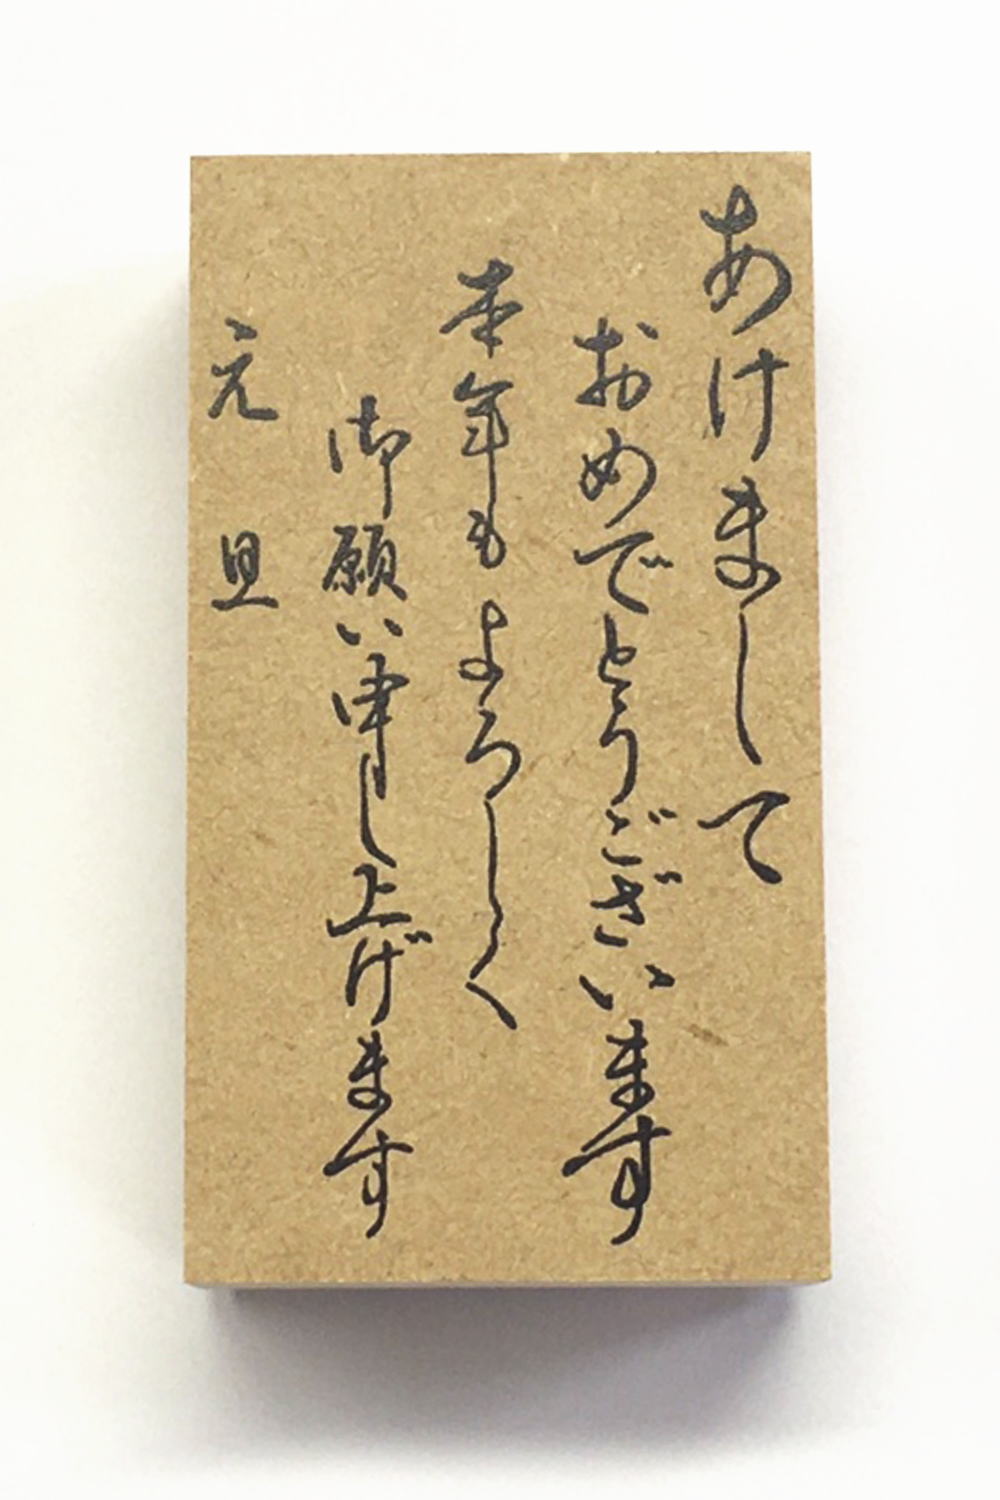 あけまして
おめでとうございます
本年もよろしく
御願い申し上げます
元旦